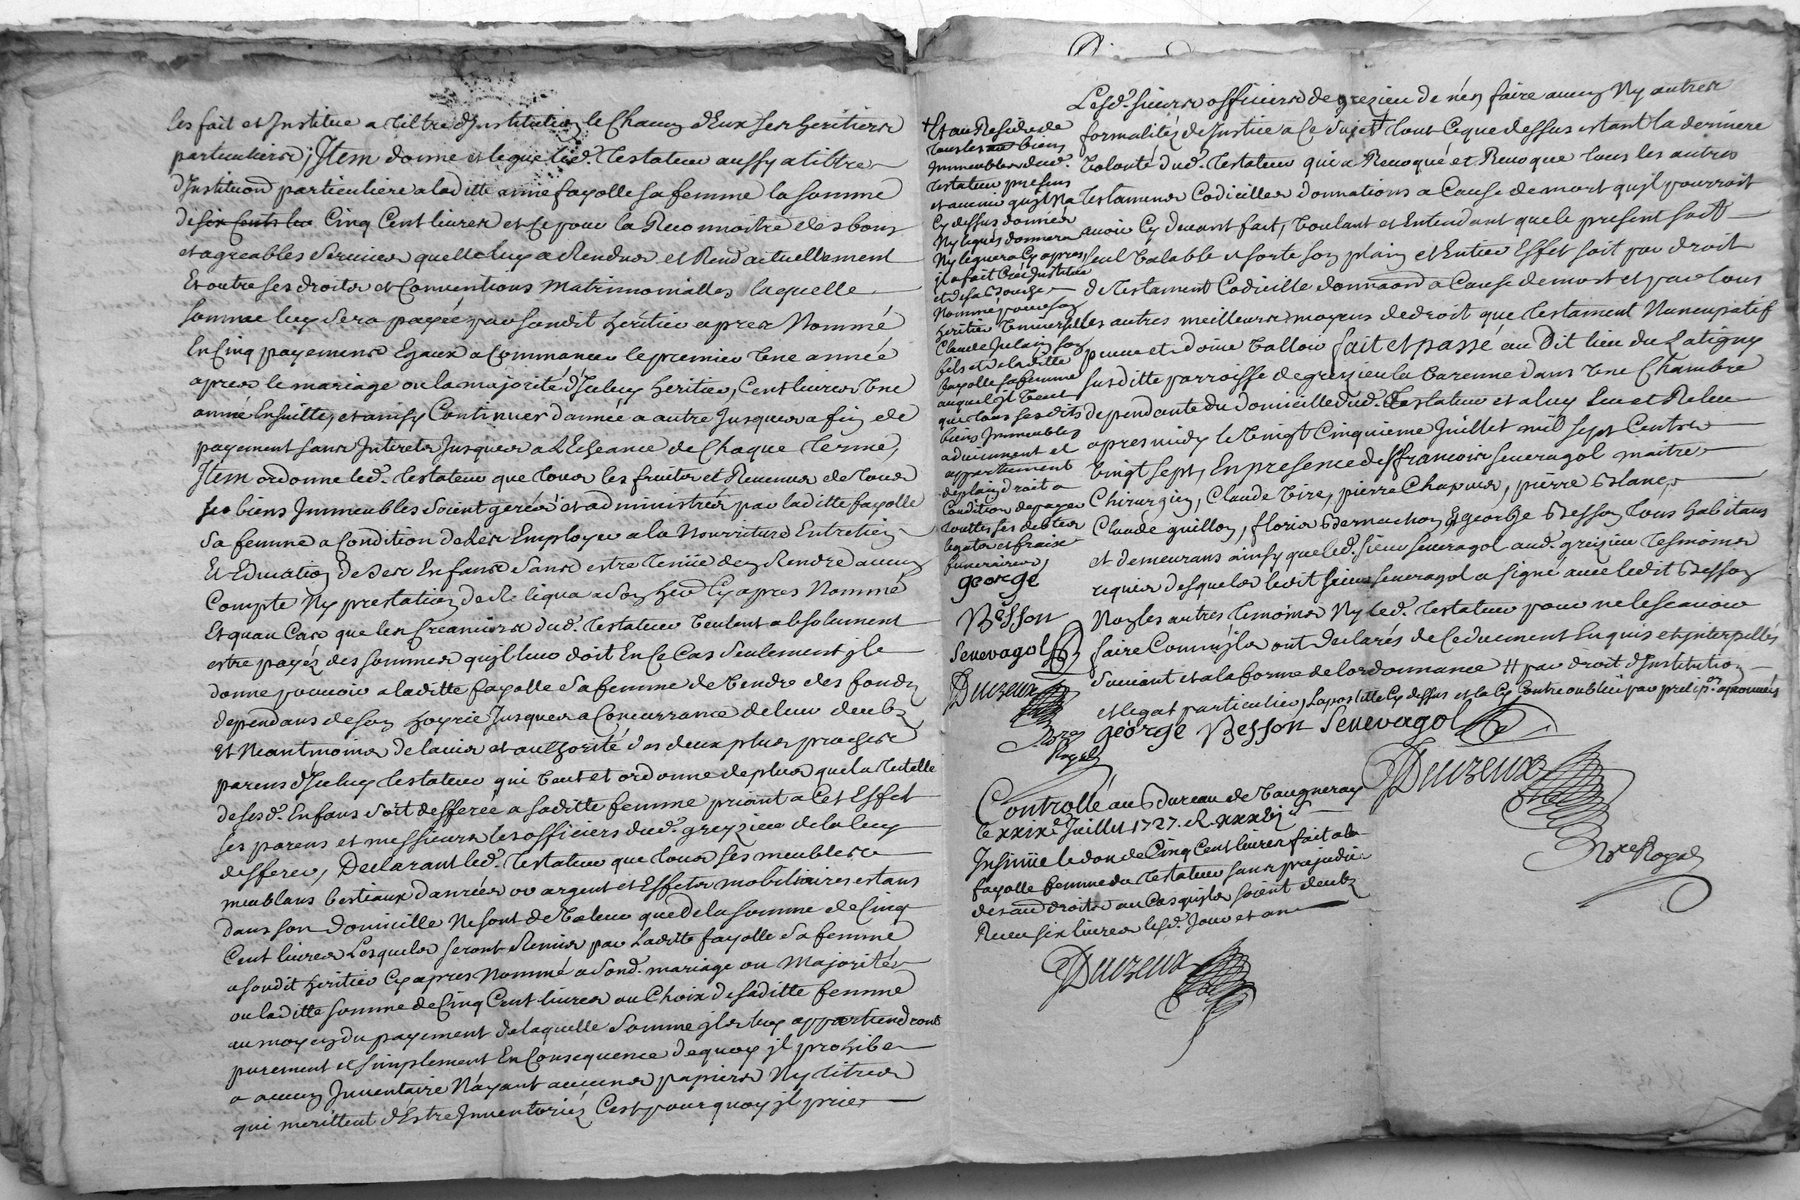 les fait et Institue a tiltre d'Institution le Chacun d'Eux ses heritiers
particuliers; Item donne et legue led. testateur aussy a tiltre
d'Institution particuliere a laditte anne fayolle sa femme la somme
de six Cents liv Cinq Cent livres et Ce pour la Reconnoitre des bons
et agreables services quelle luy a Rendus et Rend actuellement
Et outre ses droits et Conventions Matrimonialles laquelle
somme luy sera payée par sondit heritier apres Nommé
En Cinq payements Egaux a Commancer le premier Une année
apres le mariage ou la majorité d'Iceluy heritier, Cent livres Une
année Ensuitte, et ainsy Continuer d'année a autre Jusques a fin de
payement sans Interets Jusques a l'Echeance de Chaque terme,
Item ordonne led. testateur que tous les fruits et Revenus de tous
ses biens Immeubles soient gerés et administrés par laditte fayolle
sa femme a Condition de les Employer a la Nourriture Entretien
Et Education de ses Enfans sans estre tenüe den Rendre aucun
Compte Ny prestation de Reliqua a son herr. Cy apres Nommé
Et quau Cas que les Creanciers dud. testateur Veulent absolument
estre payéz des sommes quil leur doit En Ce Cas seulement jl
donne pouvoir a laditte fayolle sa femme de Vendre des fonds
dependans de son hoyrie Jusques a Concurrance de leur deub
Et Neantmoins de lavis et authorité des deux plus proches
parens d'Iceluy testateur qui Veut et ordonne de plus que la tutelle
de sesd. Enfans soit defferee a saditte femme priant a Cet Effet
ses parens et messieurs les officiers dud. greyzieu de la luy
defferer, Declarant led. testateur que tous ses meubles
meublans bestiaux danrées or argent et Effets mobiliaires estans
dans son domicille Ne sont de Valeur que de la somme de Cinq
Cent livres Lesquels seront Remis par Laditte fayolle sa femme
a sondit heritier Cy apres Nommé a sond. mariage ou Majorité
ou laditte somme de Cinq Cent livres au Choix de saditte femme
au moyen du payement de laquelle somme jls luy appartiendront
purement et simplement En Consequence dequoy jl prohibe
a aucun Inventaire N'ayant aucuns papiers Ny titres
qui merittent d'Estre Inventoriés C'est pourquoy jl prie
Lesd. sieurs officiers de grezieu de n'en faire aucun Ny autres
formalités de Justice a Ce sujet + tout Ceque dessus estant la derniere
Volonté dud. testateur qui a Revoqué et Revoque tous les autres
testamens Codicilles donnations a Cause de mort quil pourroit
avoir Cy devant fait, Voulant et Entendant que le present soit
seul Valable et sorte son plain et Entier Effet soit par droit
de testament Codicille donnaon a Cause de mort et par tous
les autres meilleurs moyens de droit que testament Nuncupatif
peut et doive Valloir fait et passé au Dit lieu du Ratigny
susditte parroisse de greyzieu la Varenne dans Une Chambre
dependante du domicille dud. testateur et a luy Leu et Releu
apres midy le Vingt Cinquieme Juillet mil sept Cents
Vingt sept, En presence de sr francois senevagol maitre
Chirurgien, Claude Vire, pierre Chapuis, pierre Blanc,
Claude guillon, floris Bernachon & george Besson tous habitans
et demeurans ainsy que led. sieur senevagol aud. greizieu tesmoins
requis desquels ledit sieur senevagol a signé avec ledit Besson
Non les autres temoins Ny led. testateur pour ne le scavoir
faire Comm'jls ont declarés de Ce duement Enquis et interpellés
suivant et a la forme de lordonnance # par droit d'Institution
et legat particulier, Lapostille Cy dessus et la Cy Contre oubliée par preson. aprouvés
george Besson Senevagol
Duizeux
Nre Royal
+ Et au Residu de
tous les biens
Immeubles dud.
testateur presens
et avenir quil Na
Cy dessus donnés
Ny legués donnera
Ny leguera Cy apres,
jl a fait Créé Institué
et de sa Bouche
Nommé pour son
heritier Universel
Claude Julien son
fils et de laditte
fayolle sa femme
auquel jl Veut
que tous sesdits
biens Immeubles
adviennent et
appartiennent
de plain droit a
Condition de payer
touttes ses debtes
legats et fraix
funeraires,
george
Besson
Senevagol
Duizeux
Nre
Royal
Controllé au Bureau de Vaugneray
le xxixe Juillet 1727. R. xxx
Insinüé le don de Cinq Cent livres fait a la
fayolle femme du testateur sans prejudice
des au droits au Cas quils soient deubs
Receu six livres lesd. Jour et an
Duizeux